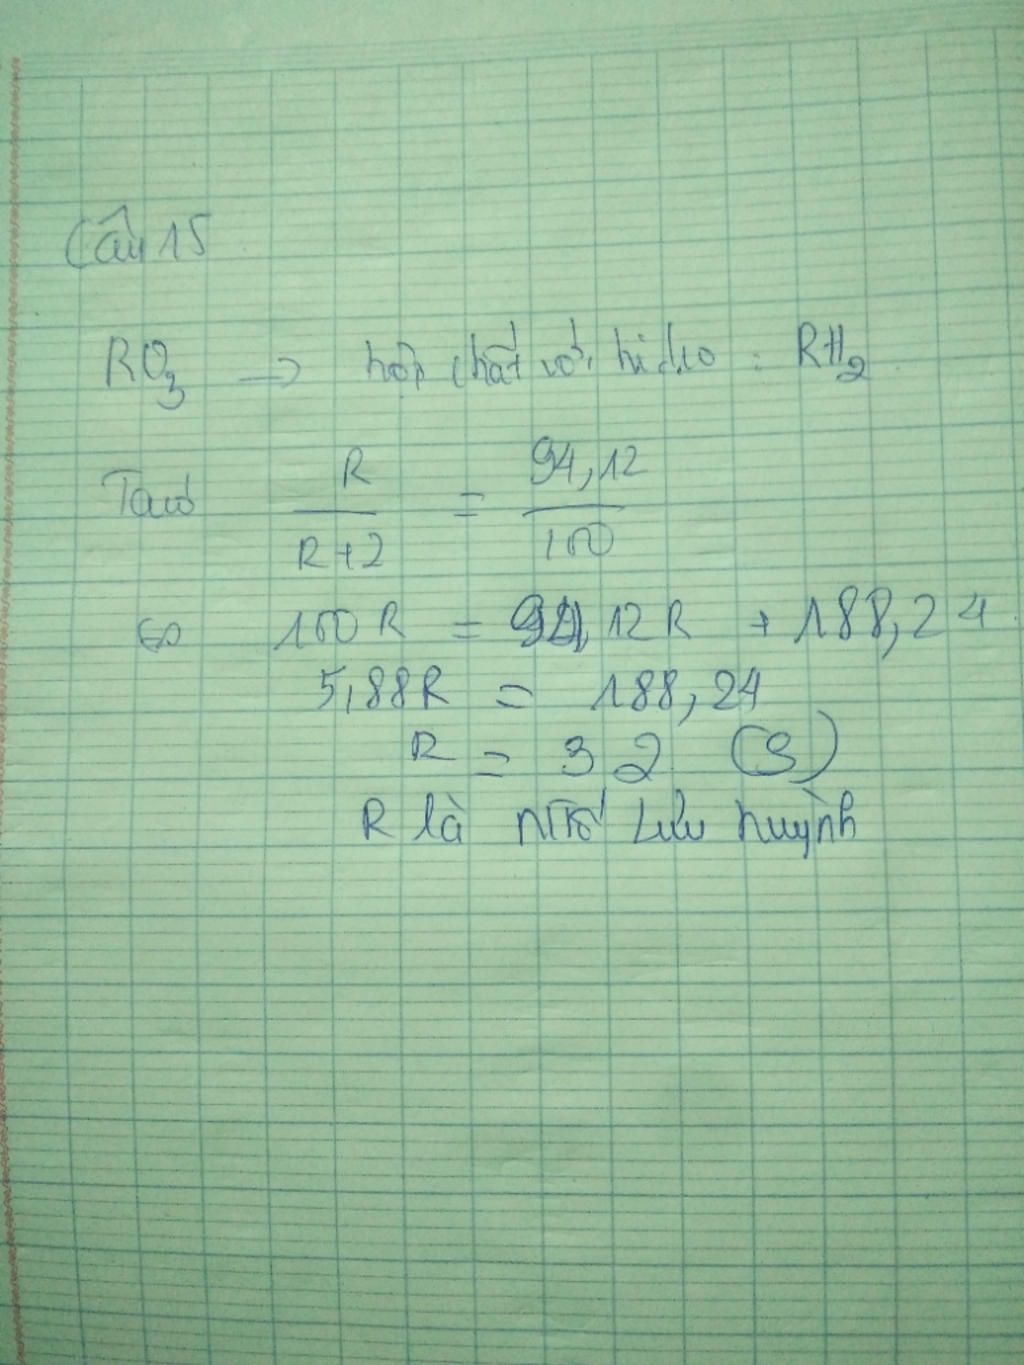 Câu 15
RO3 → hợp chất với hidro : RH2
Ta có R/R+2 = 94,12/100
⇔ 100R = 94,12R + 188,24
5,88R = 188,24
R = 32 (S)
R là NTố Lưu huỳnh